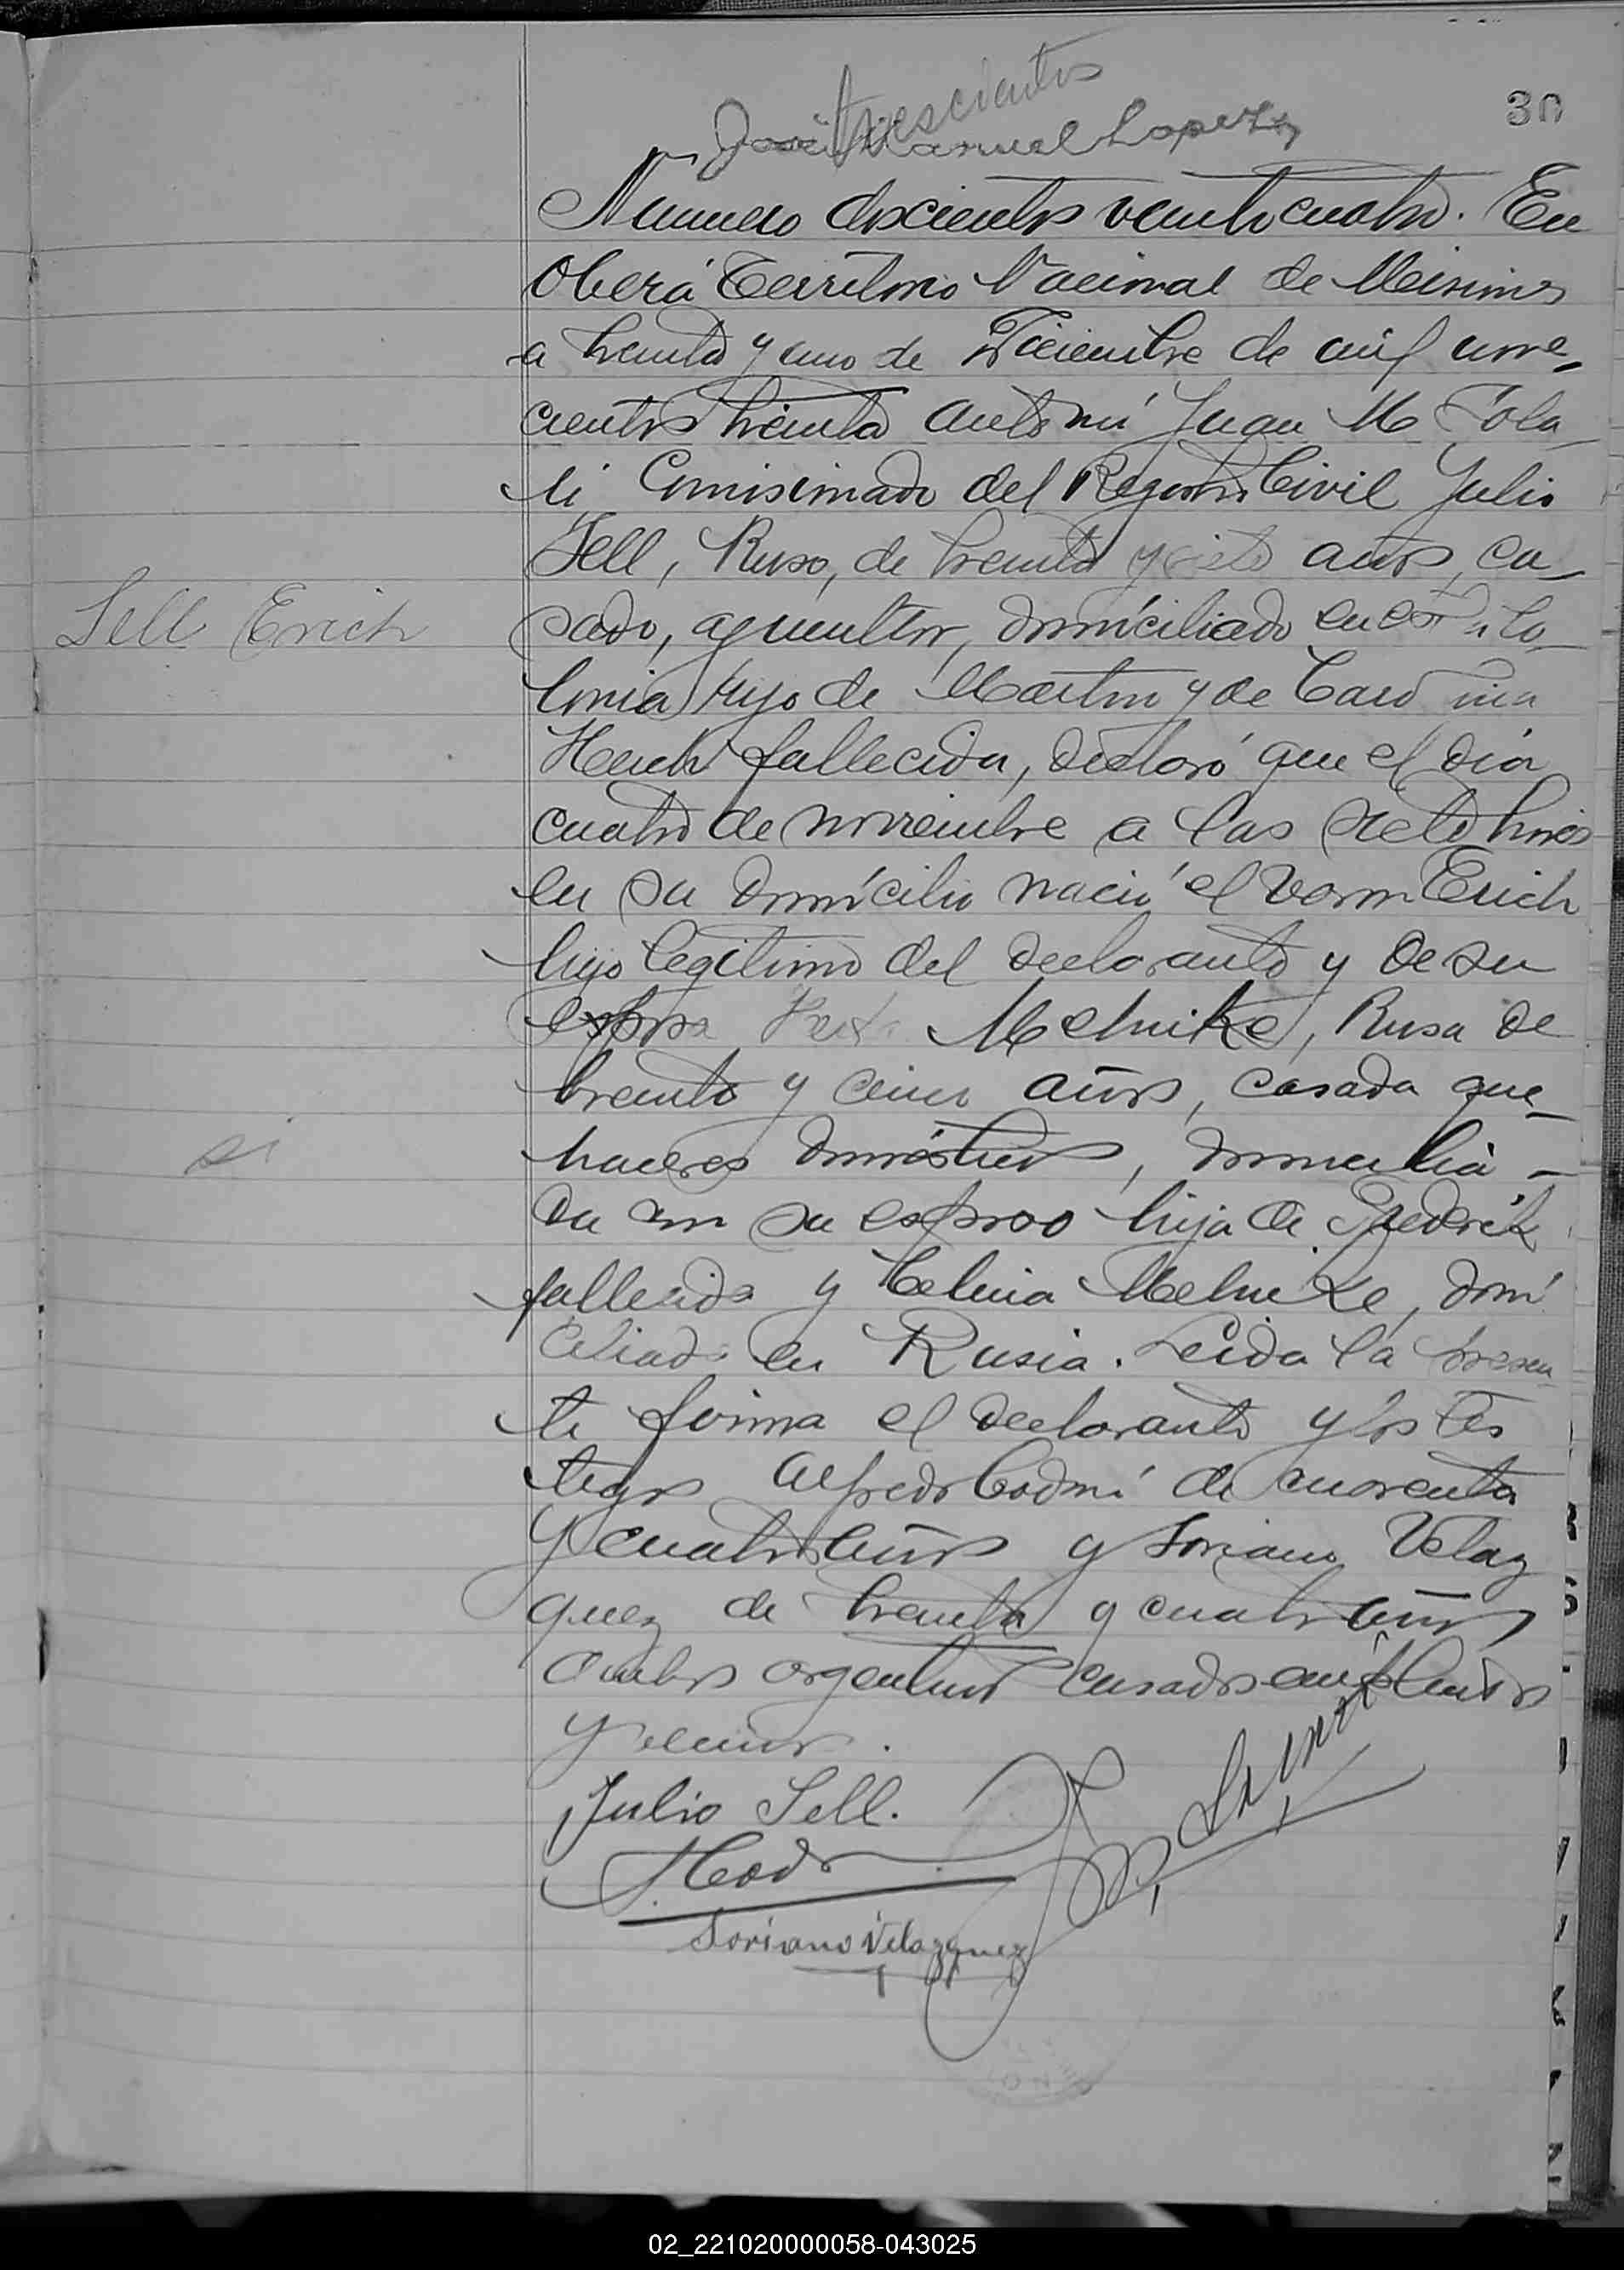 trescientos
José Manuel Lopez
30
Numero doscientos veinticuatro. En
Oberá Territorio Nacional de Misiones
a treinta y uno de Diciembre de mil nove-
cientos treinta ante mi Juan M
li Comisionado del Registro Civil Julio
Sell, Ruso, de treinta y siete años, ca-
Sell Erich
sado, agricultor, domiciliado en esta Co-
lonia hijo de Martin y de Carolina
fallecida, declaró que el día
cuatro de noviembre a las siete horas
en su domicilio nació el varon Erich
hijo legitimo del declarante y de su
esposa Melnike, Rusa de
treinta y cinco años, casada que-
si
haceres domésticos, domicilia-
da con su esposo hija de Fredrik
fallecido y Celina Melnike, domi
ciliada en Rusia. Leida la presen
te firma el declarante y los tes
tigos Alfredo de cuarenta
y cuatro años y Soriano Velaz
quez de treinta y cuatro años
ambos argentinos casados
y vecinos.
Julio Sell.
Soriano Velazquez
02_221020000058-043025